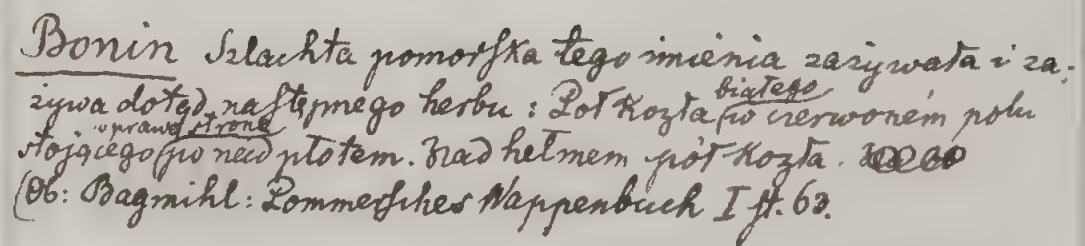 Bonin Szlachta pomorska tego imienia zażywała i za-
białego
żywa dotąd następnego herbu: Pół Kozła w czerwoném polu
w prawą stronę
stojącego ponad płotem. Nad hełmem pół Kozła.
(Ob: Bagmihl: Pommersches Wappenbuch I st. 63.